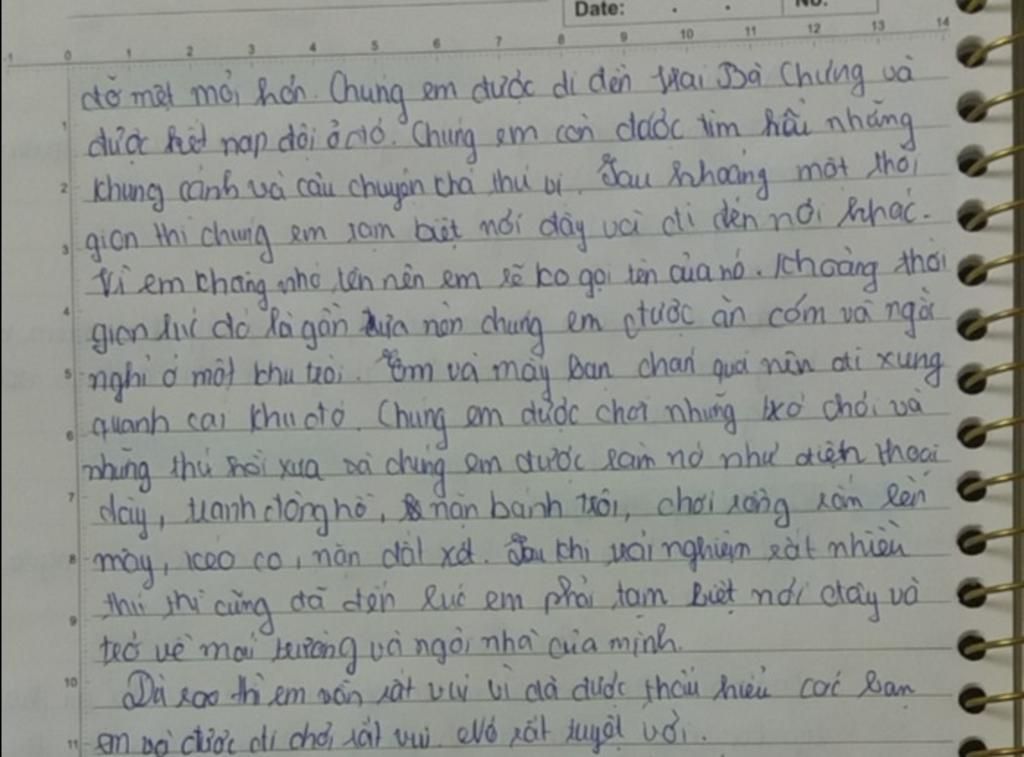 Date: . . No:
-1 0 1 2 3 4 5 6 7 8 9 10 11 12 13 14
đỡ mệt mỏi hơn. Chúng em được đi đến Hai Bà Chưng và
1 được kết nạp đội ở đó. Chúng em còn được tìm hiểu những
2 khung cảnh và câu chuyện thú vị. Sau khoảng một thời
3 gian thì chúng em tạm biệt nơi đây và đi đến nơi khác.
Vì em không nhớ tên nên em sẽ ko gọi tên của nó. Khoảng thời
4 gian lúc đó là gần trưa nên chúng em được ăn cơm và ngồi
5 nghỉ ở một khu trời. Em và mấy bạn chán quá nên đi xung
6 quanh cái khu đó. Chúng em được chơi những trò chơi và
những thứ hồi xưa và chúng em được làm nó như điện thoại
7 dây, tranh đông hồ, nặn bánh trôi, chơi rồng rắn lên
8 mây, kéo co, nặn đất xét. Sau khi trải nghiệm rất nhiều
9 thứ thì cũng đã đến lúc em phải tạm biệt nơi đây và
trở về mái trường và ngôi nhà của mình.
10 Dù sao thì em vẫn rất vui vì đã được thấu hiểu các bạn
11 em và được đi chơi rất vui. Nó rất tuyệt vời.